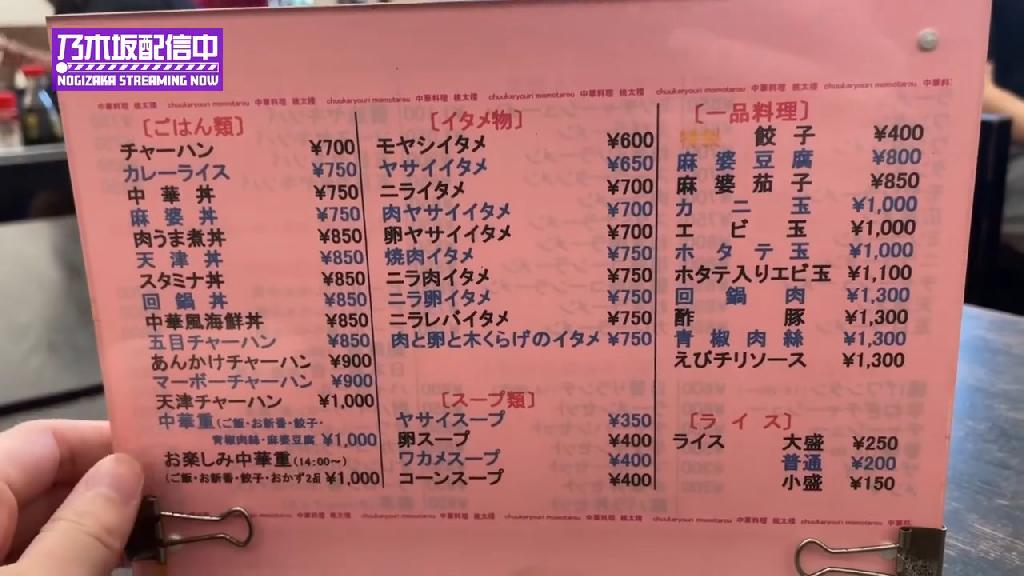 乃木坂配信中
NOGIZAKA STREAMING NOW
中華料理 桃太楼 chuukaryouri momotarou 中華料理 桃太楼 chuukaryouri momotarou 中華料理 桃太楼 chuukaryouri momotarou 中華料理 桃太楼
〔ごはん類〕
チャーハン ¥700
カレーライス ¥750
中華丼 ¥750
麻婆丼 ¥750
肉うま煮丼 ¥850
天津丼 ¥850
スタミナ丼 ¥850
回鍋丼 ¥850
中華風海鮮丼 ¥850
五目チャーハン ¥850
あんかけチャーハン ¥900
マーボーチャーハン ¥900
天津チャーハン ¥1,000
中華重(ご飯・お新香・餃子・
青椒肉絲・麻婆豆腐 ¥1,000
お楽しみ中華重(14:00〜)
(ご飯・お新香・餃子・おかず2品 ¥1,000
〔イタメ物〕
モヤシイタメ ¥600
ヤサイイタメ ¥650
ニライタメ ¥700
肉ヤサイイタメ ¥700
卵ヤサイイタメ ¥700
焼肉イタメ ¥750
ニラ肉イタメ ¥750
ニラ卵イタメ ¥750
ニラレバイタメ ¥750
肉と卵と木くらげのイタメ ¥750
〔スープ類〕
ヤサイスープ ¥350
卵スープ ¥400
ワカメスープ ¥400
コーンスープ ¥400
〔一品料理〕
餃子 ¥400
麻婆豆腐 ¥800
麻婆茄子 ¥850
カニ玉 ¥1,000
エビ玉 ¥1,000
ホタテ玉 ¥1,000
ホタテ入りエビ玉 ¥1,100
回鍋肉 ¥1,300
酢豚 ¥1,300
青椒肉絲 ¥1,300
えびチリソース ¥1,300
〔ライス〕
ライス 大盛 ¥250
普通 ¥200
小盛 ¥150